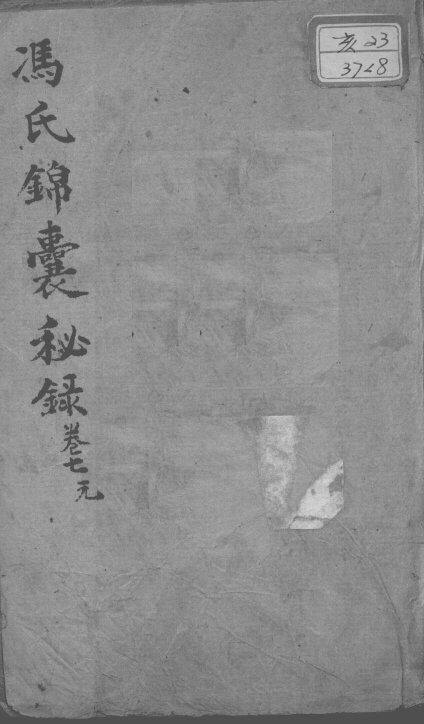 馮氏錦囊秘録卷七元
亥 23
3728